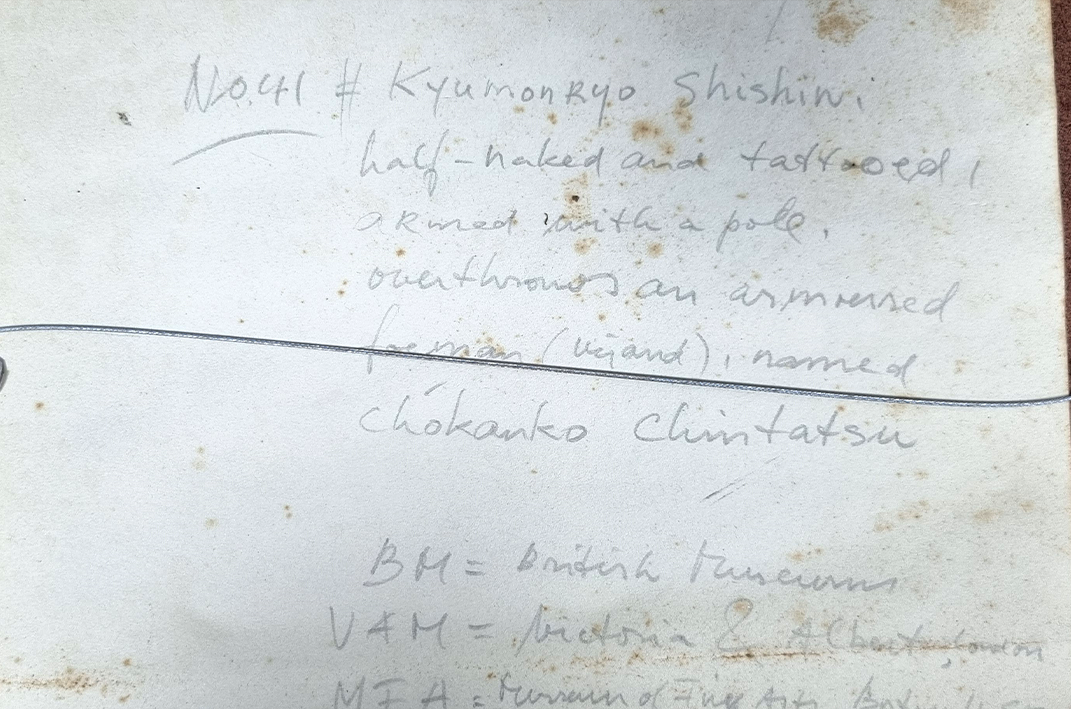 No.41 # Kyumonryo Shishin,
half-naked and tattooed,
armed with a pole,
overthrows an armoured
foeman (vijand), named
Chókanko Chintatsu
BM = British Museum
V & M = Victoria & Albert, London
MFA = Museum of Fine Arts,